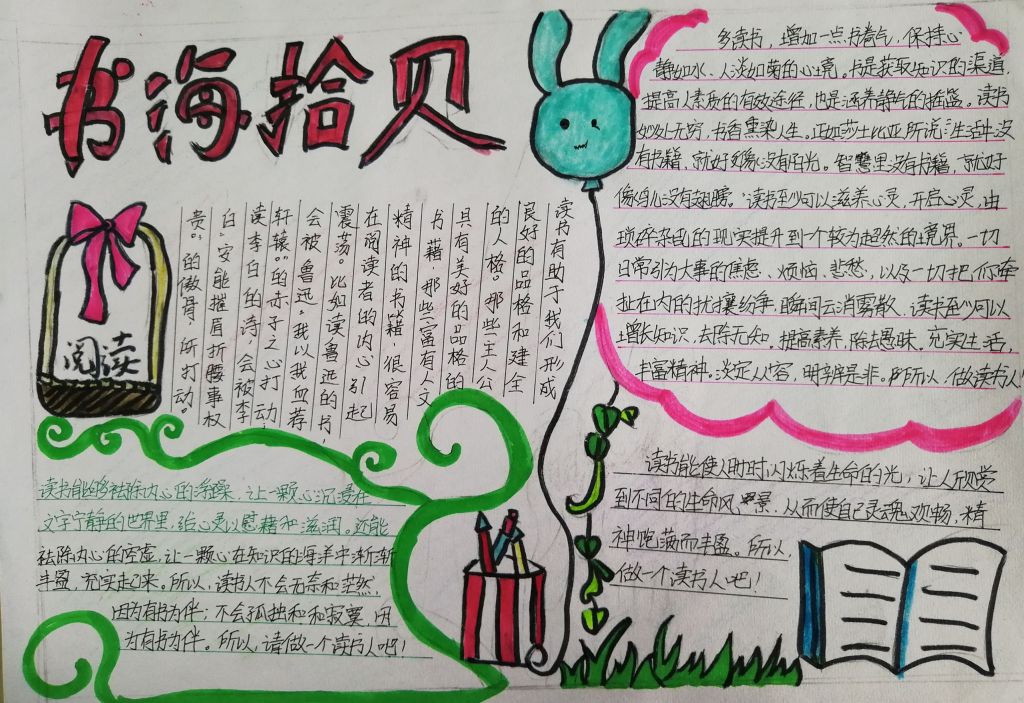 书海拾贝
阅读
读书有助于我们形成
良好的品格和建全
的人格。那些主人公
具有美好的品格的
书籍，那些富有人文
精神的书籍，很容易
在阅读者的内心引起
震荡。比如读鲁迅的书，
会被鲁迅“我以我血荐
轩辕”的赤子之心打动，
读李白的诗，会被李
白“安能摧眉折腰事权
贵”的傲骨，所打动。
多读书，增加一点书卷气，保持心
静如水、人淡如菊的心境。书是获取知识的渠道，
提高人素质的有效途径，也是涵养静气的摇篮。读书
妙处无穷，书香熏染人生。正如莎士比亚所说：“生活中没
有书籍，就好象没有阳光。智慧里没有书籍，就好
像鸟儿没有翅膀。”读书至少可以滋养心灵，开启心灵，由
琐碎杂乱的现实提升到一个较为超然的境界。一切
日常引为大事的焦虑、烦恼、悲愁，以及一切把你牵
扯在内的扰攘纷争，瞬间云消雾散，读书至少可以
增长知识，去除无知。提高素养，除去愚昧。充实生活，
丰富精神。淡定人容，明辨是非。所以，做读书人！
读书能够祛除内心的浮躁，让一颗心沉浸在
文字宁静的世界里，给心灵以慰藉和滋润。还能
祛除内心的空虚，让一颗心在知识的海洋中渐渐
丰盈，充实起来。所以，读书人不会无奈和茫然，
因为有书为伴；不会孤独和和寂寞，因
为有书为伴。所以，请做一个读书人吧！
读书能使人时时闪烁着生命的光，让人欣赏
到不同的生命风景，从而使自己灵魂欢畅，精
神饱满而丰盈。所以，
做一个读书人吧！